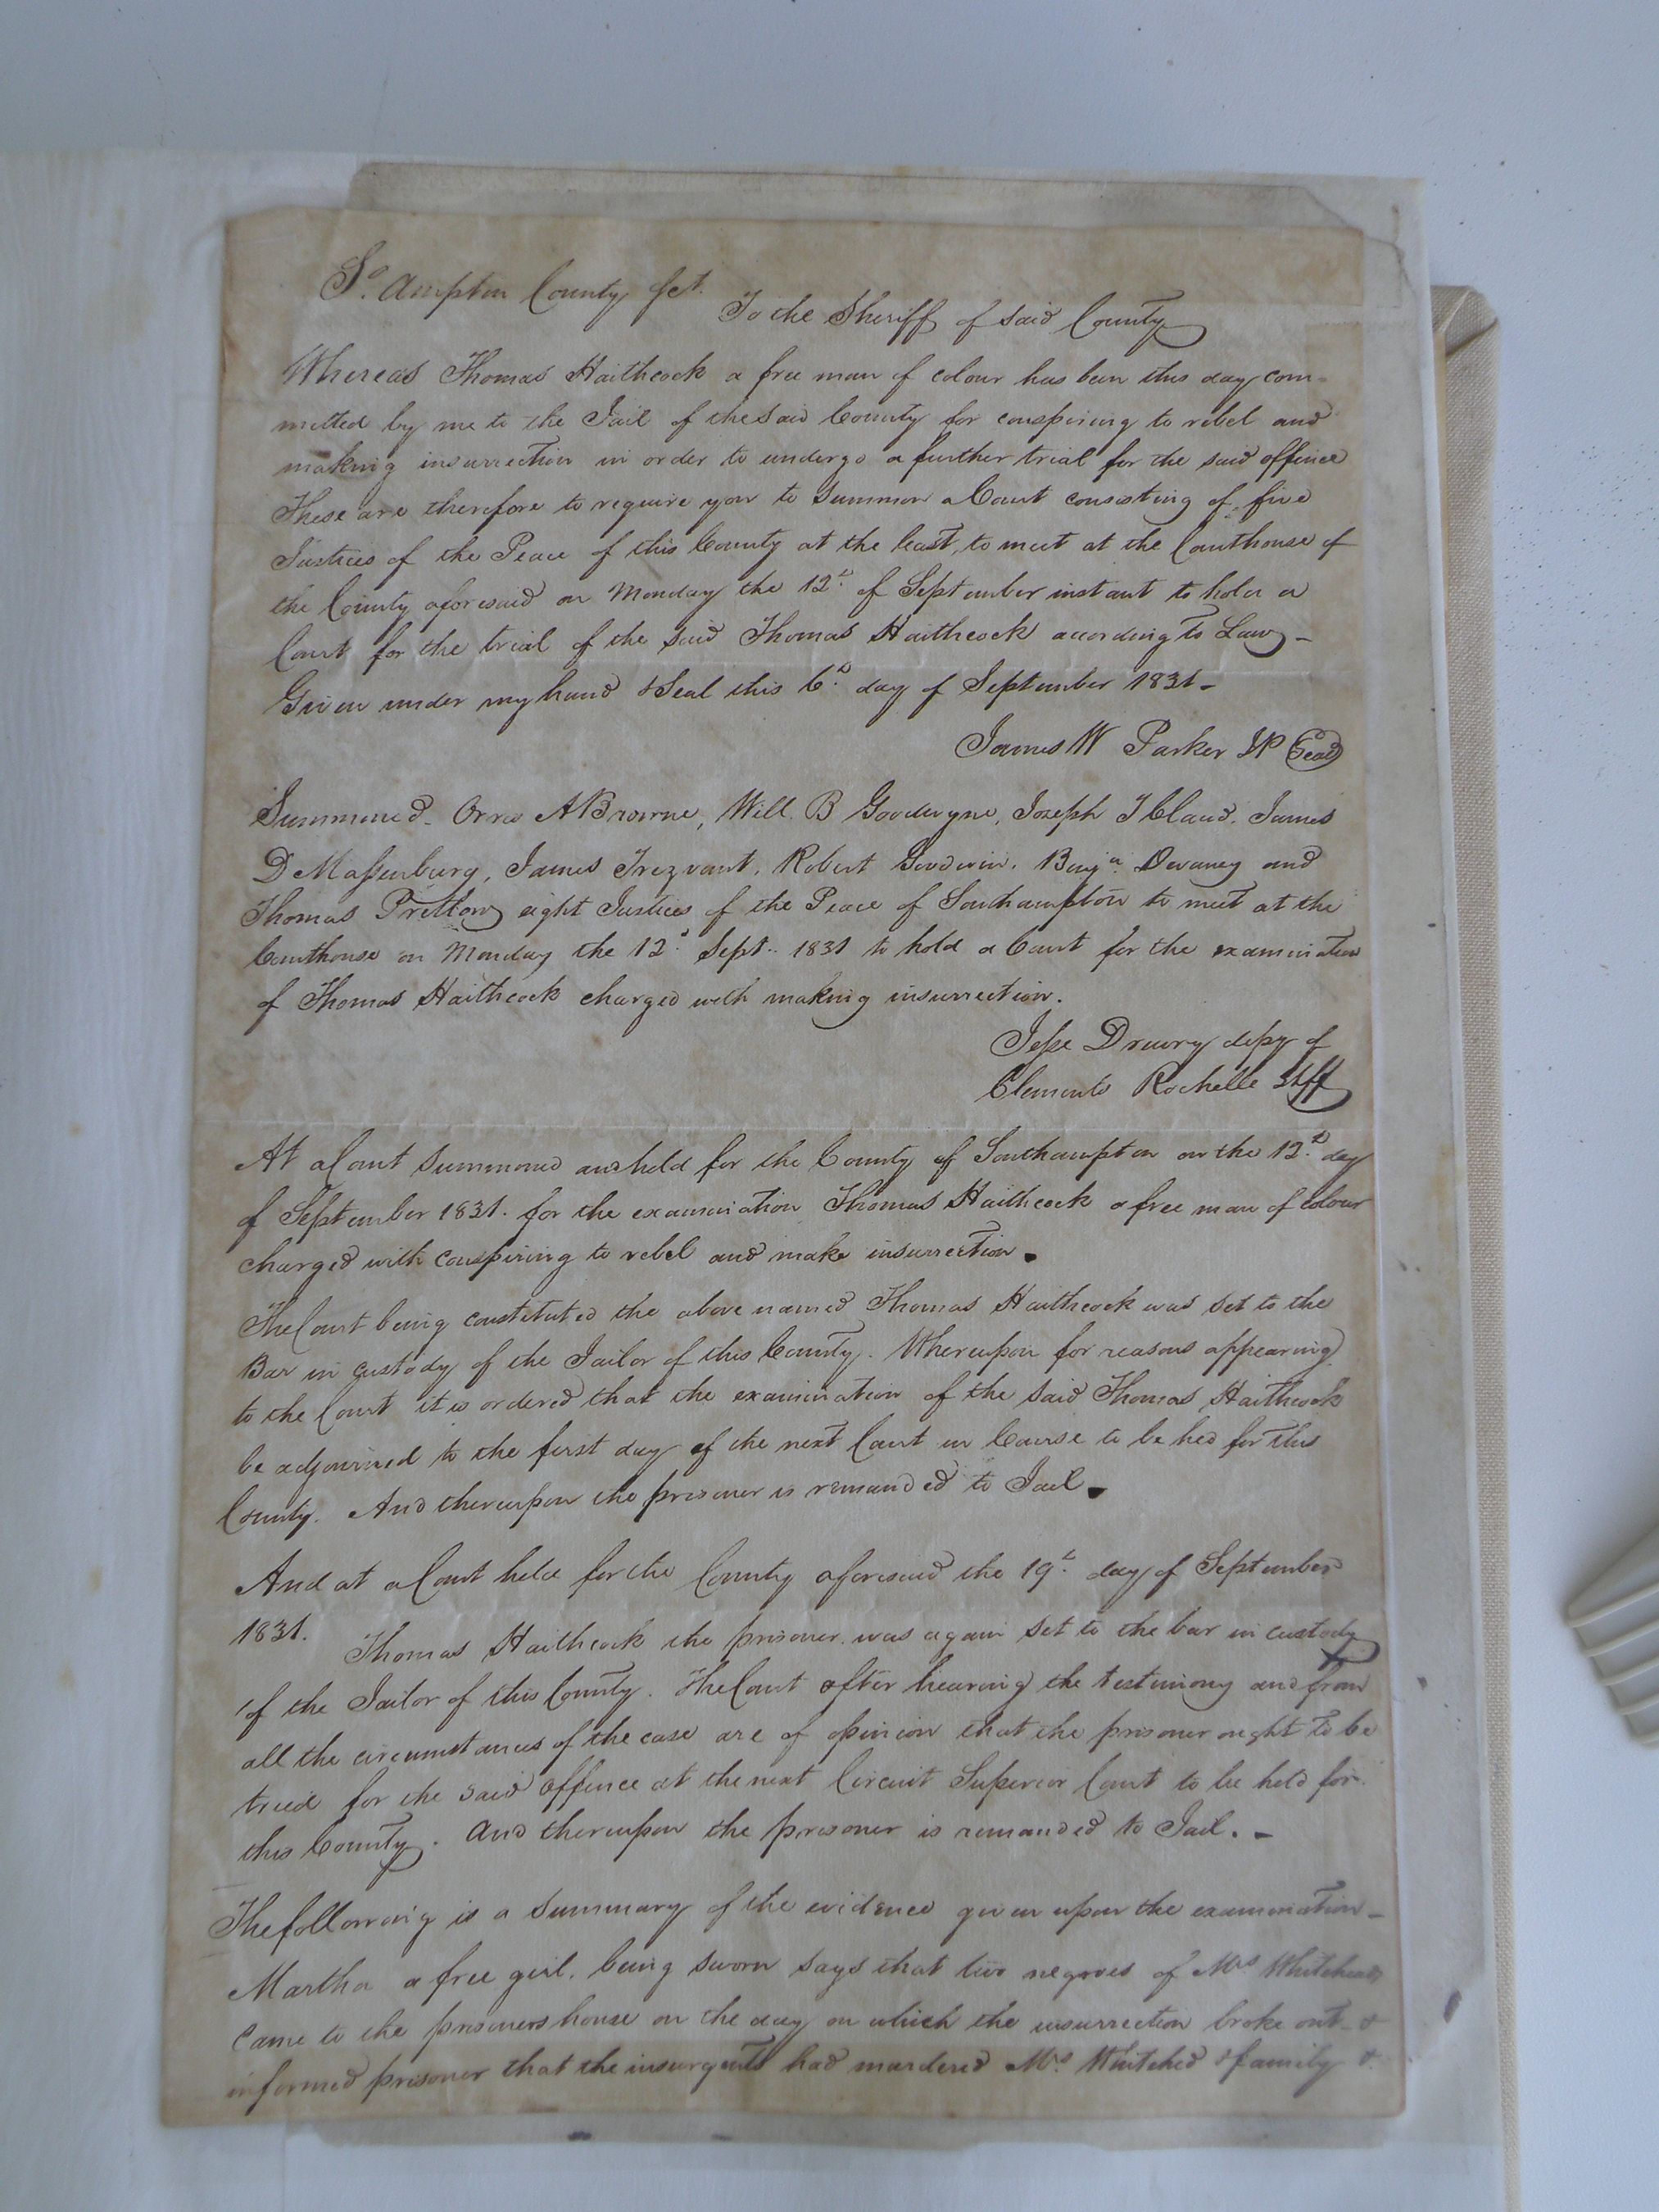 So. Ampton County Sct.
To the Sheriff of said County
Whereas Thomas Haithcock a free man of colour has been this day com-
mitted by me to the Jail of the said County for conspiring to rebel and
making insurrection in order to undergo a further trial for the said offence
These are therefore to require you to summon a Court consisting of five
Justices of the Peace of this County at the least, to meet at the Courthouse of
the County aforesaid on Monday the 12th of September instant to hold a
Court for the trial of the said Thomas Haithcock according to Law -
Given under my hand & Seal this 6th day of September 1831 -
James W Parker JP Seal
Summoned. Orris A Browne, Will. B Goodwyne, Joseph T Claud, James
D Massenburg, James Trezvant, Robert Goodwin, Benja. Devaney and
Thomas Pretlow eight Justices of the Peace of Southampton to meet at the
Courthouse on Monday the 12th Sept. 1831 to hold a Court for the examination
of Thomas Haithcock charged with making insurrection.
Jesse Drewry depy of
Clements Rochelle Shff
At a Court summoned and held for the County of Southampton on the 12th day
of September 1831. for the examination Thomas Haithcock a free man of colour
charged with conspiring to rebel and make insurrection.
The Court being constituted the above named Thomas Haithcock was set to the
Bar in custody of the Jailor of this County. Whereupon for reasons appearing
to the Court it is ordered that the examination of the said Thomas Haithcock
be adjourned to the first day of the next Court in Course to be hed for this
County. And thereupon the prisoner is remanded to Jail.
And at a Court held for the County aforesaid the 19th day of September
1831. Thomas Haithcock the prisoner was again set to the bar in custody
of the Jailor of this County. The Court after hearing the testimony and from
all the circumstances of the case are of opinion that the prisoner ought to be
tried for the said offence at the next Circuit Superior Court to be held for
this County. And thereupon the prisoner is remanded to Jail. -
The following is a summary of the evidence given upon the examination -
Martha a free girl, being sworn says that two negroes of Mrs Whitehead
came to the prisoners house on the day on which the insurrection broke out - &
informed prisoner that the insurgents had murdered Mrs Whitehed & family &